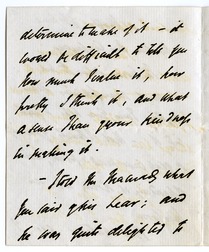 determine to make of it - it
would be difficult to tell you
how much I value it, how
pretty I think it, and what
a sense I have of your kindness
in making it.
- I told Mr what
you said of his Lear; and
he was quite delighted to